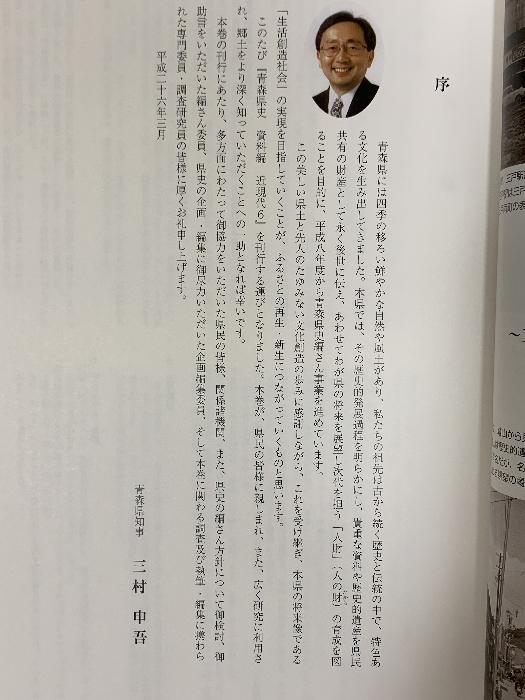 序
青森県には四季の移ろい鮮やかな自然や風土があり、私たちの祖先は古から続く歴史と伝統の中で、特色あ
る文化を生み出してきました。本県では、その歴史的発展過程を明らかにし、貴重な資料や歴史的遺産を県民
共有の財産として永く後世に伝え、あわせてわが県の将来を展望し次代を担う「人財」（人の財）の育成を図
ることを目的に、平成八年度から青森県史編さん事業を進めています。
この美しい県土と先人のたゆみない文化創造の歩みに感謝しながら、これを受け継ぎ、本県の将来像である
「生活創造社会」の実現を目指していくことが、ふるさとの再生・新生につながっていくものと思います。
このたび『青森県史　資料編　近現代6』を刊行する運びとなりました。本巻が、県民の皆様に親しまれ、また、広く研究に利用さ
れ、郷土をより深く知っていただくことへの一助となれば幸いです。
本巻の刊行にあたり、多方面にわたって御協力をいただいた県民の皆様、関係諸機関、また、県史の編さん方針について御検討、御
助言をいただいた編さん委員、県史の企画・編集に御尽力いただいた企画編集委員、そして本巻に関わる調査及び執筆・編集に携わら
れた専門委員・調査研究員の皆様に厚くお礼申し上げます。
平成二十六年三月
青森県知事　三村申吾